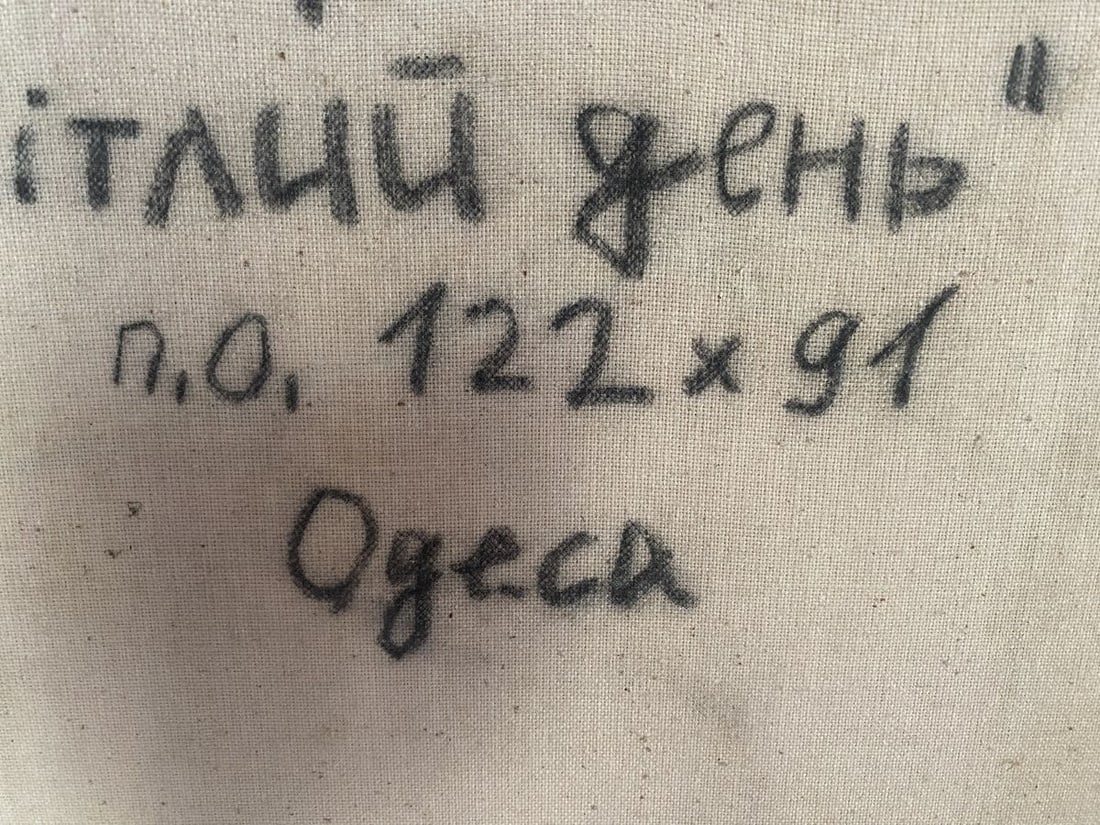 ітлий день"
п.о. 122 x 91
Одеса